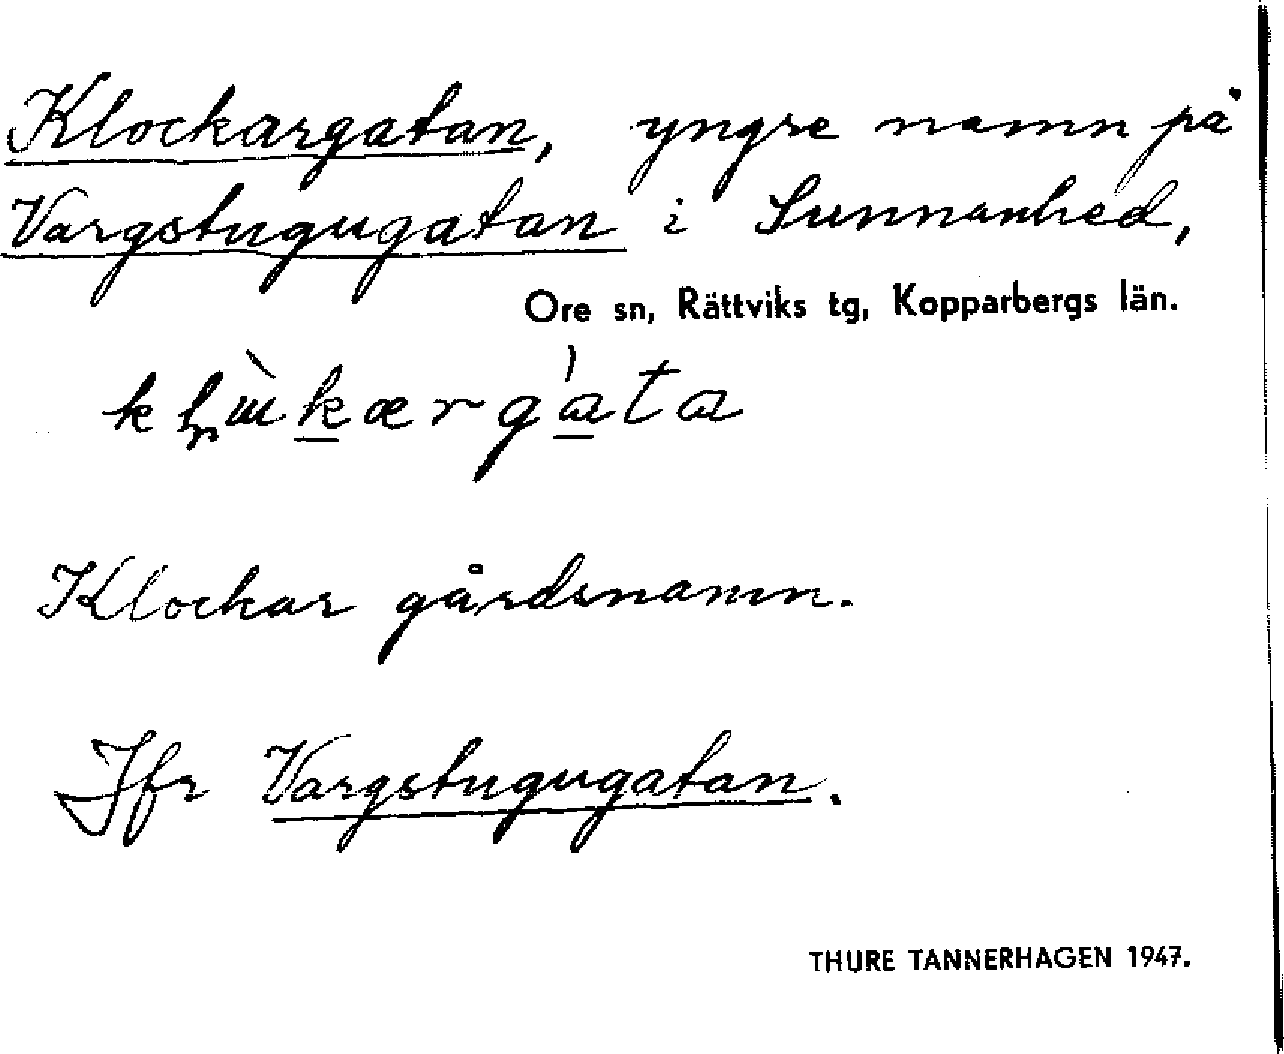 Klockargatan, yngre namn på
Vargstugugatan i Sunnanhed,
Ore sn, Rättviks tg, Kopparbergs län.
Klockar gårdsnamn.
Jfr Vargstugugatan.
THURE TANNERHAGEN 1947.